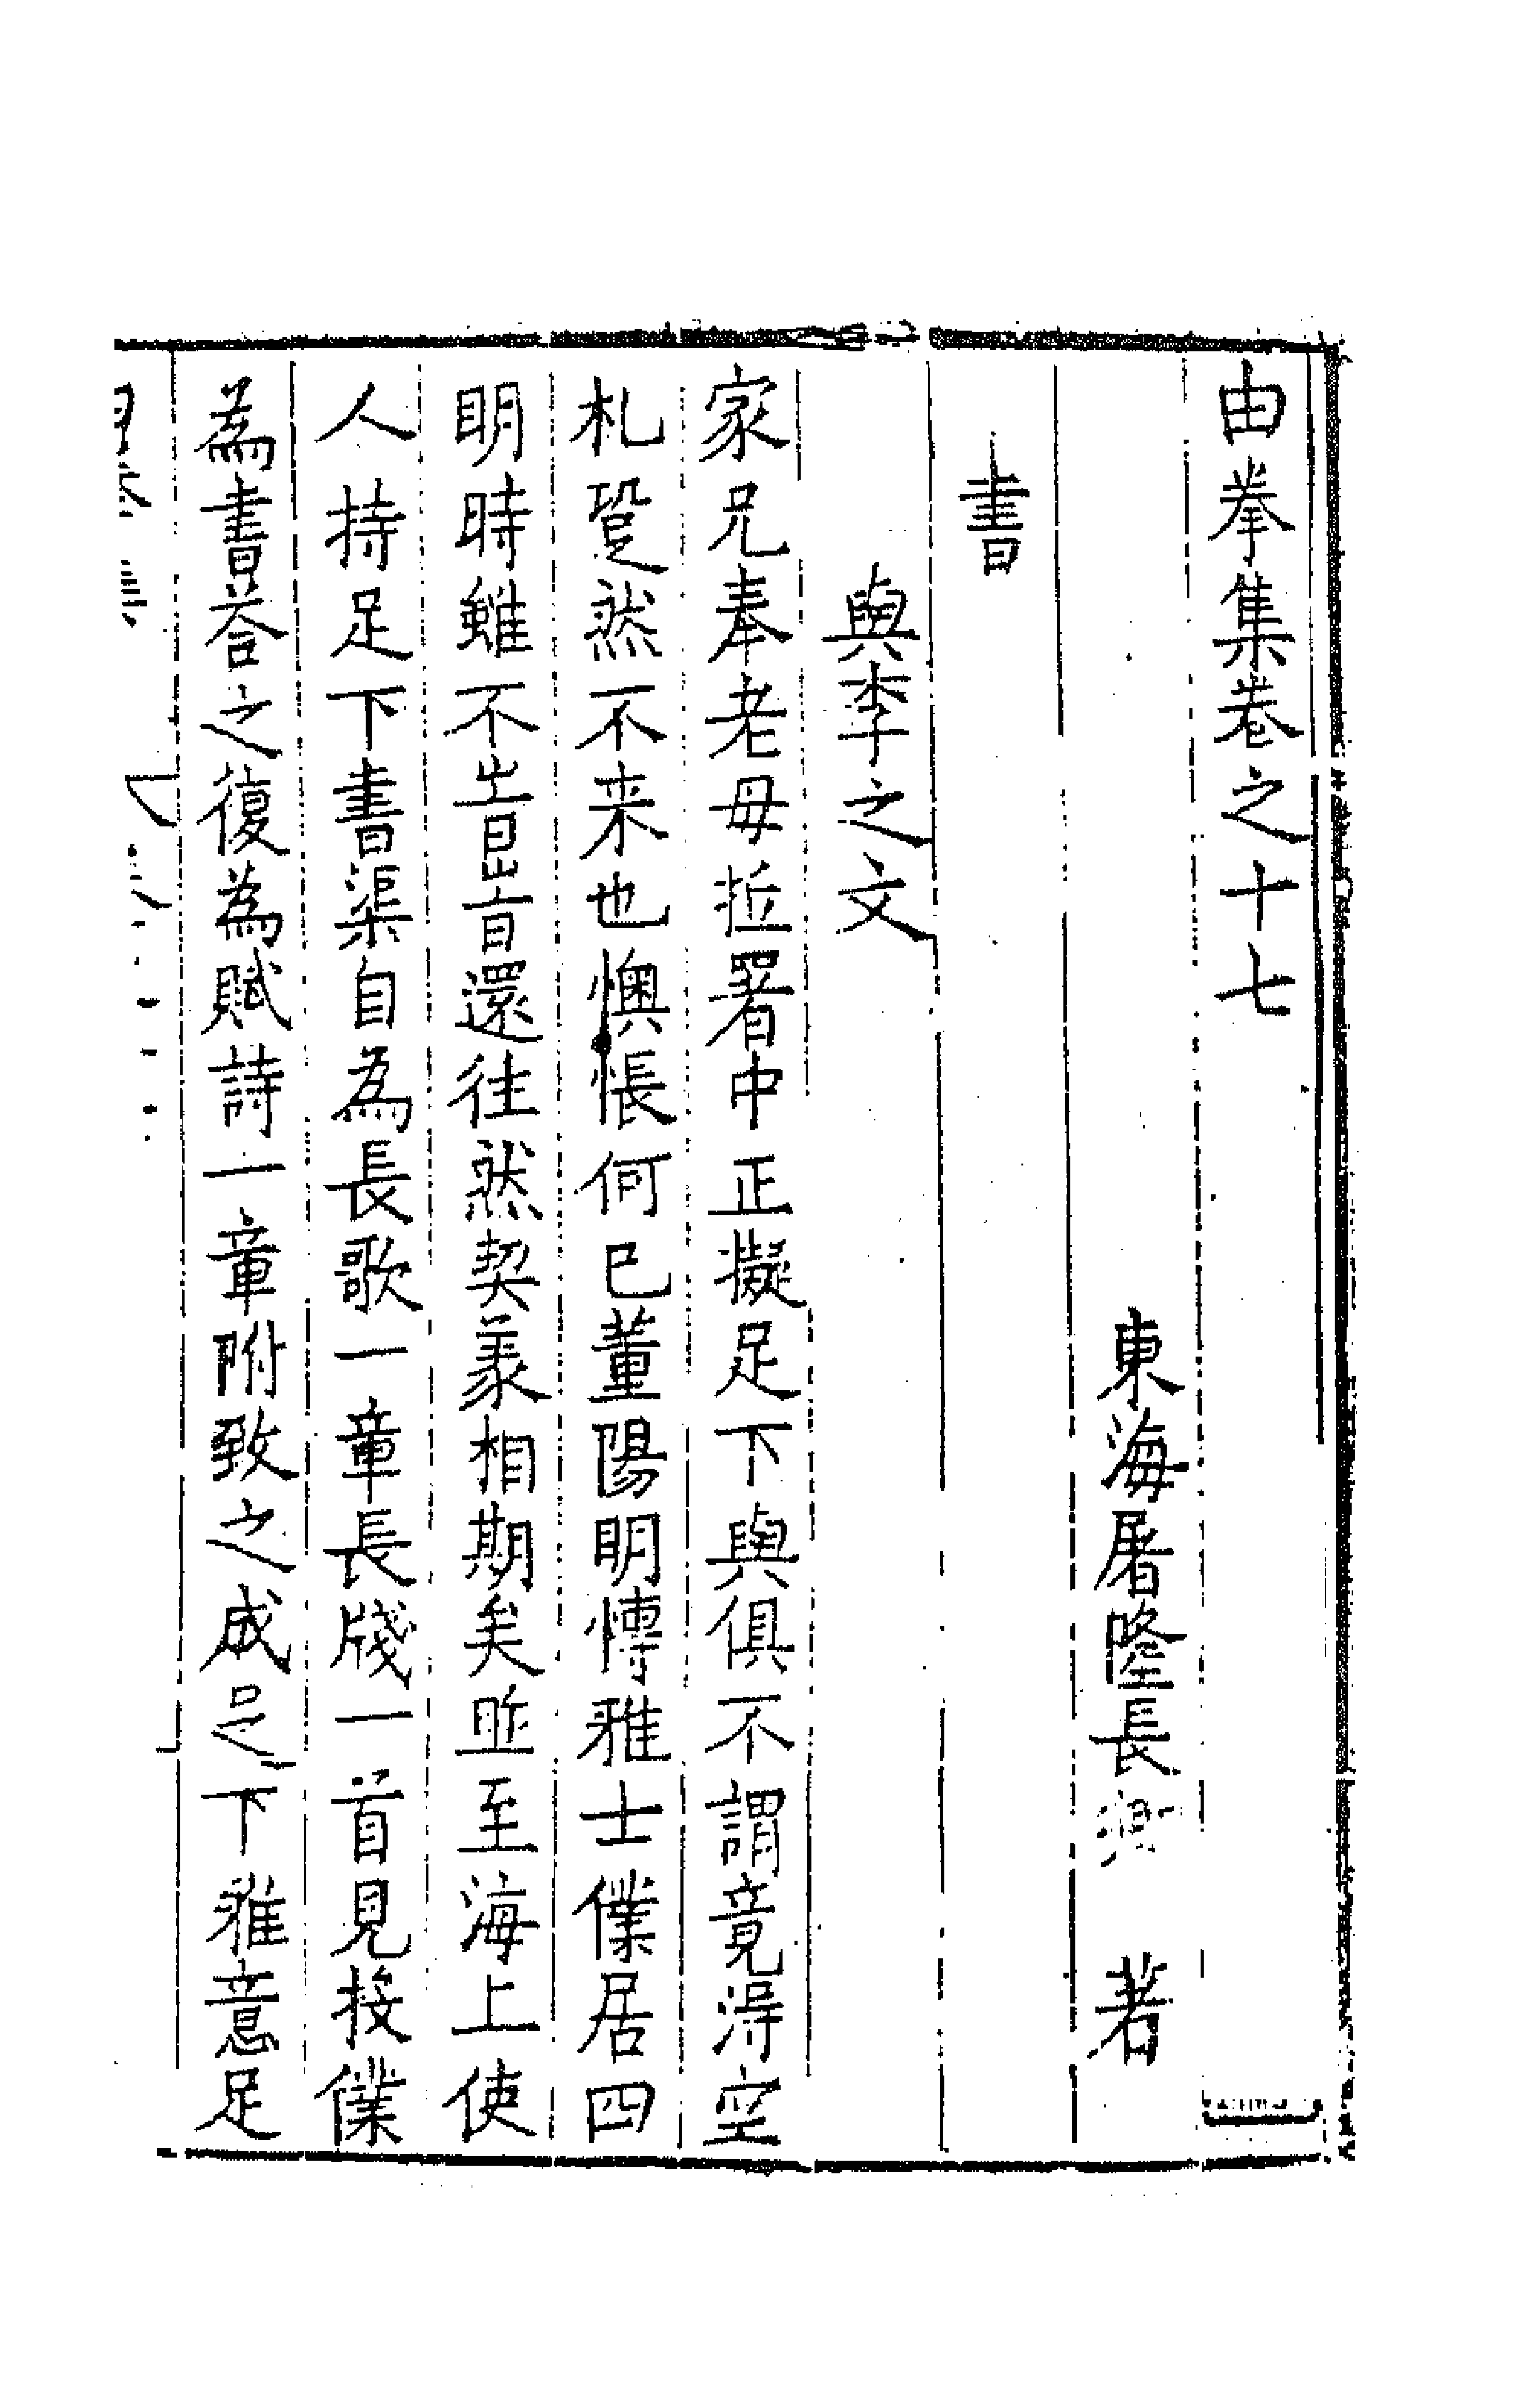 由拳集卷之十七
東海屠隆長卿 著
書
與李之文
家兄奉老母莅署中正擬足下與俱不謂竟得空
札跫然不来也懊悵何已董陽明慱雅士僕居四
明時雖不皆昬旹還徃然契義相期矣昨至海上使
人持足下書渠自為長歌一章長牋一首見投僕
為書荅之復為賦詩一章附致之成足下雅意足